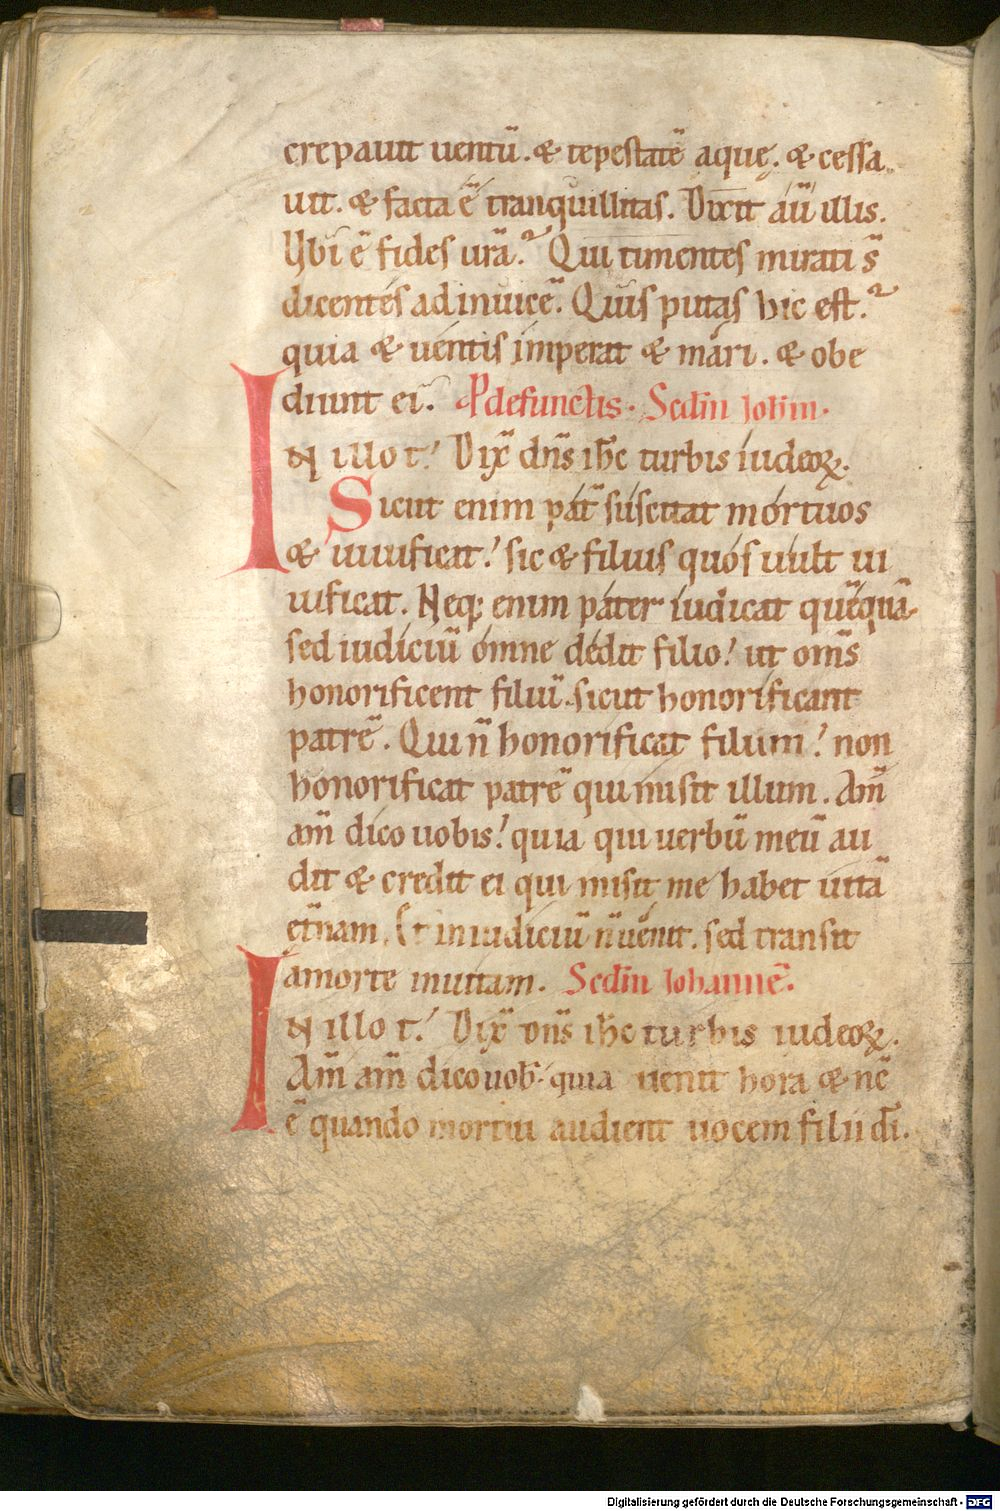 crepauit uentū. & tēpestatē aquę. & cessa
uit. & facta ē tranquillitas. Dixit aū illis.
Vbi ē fides ur̄a? Qui timentes mirati s̄
dicentes adinuicē. Quis putas hic est?
quia & uentis imperat & mari. & obe
diunt ei. P defunctis. Scd̄m Ioh̄m.
IN illo t̄. Dix̄ dn̄s ih̄c turbis iudeoꝝ.
Sicut enim pat̄ suscitat mortuos
& uiuificat. sic & filius quos uult ui
uificat. Neq; enim pater iudicat quēquā
sed iudiciū omne dedit filio. ut om̄s
honorificent filiū. sicut honorificant
patrē. Qui n̄ honorificat filium. non
honorificat patrē qui misit illum. Am̄
am̄ dico uobis. quia qui uerbū meū au
dit & credit ei qui misit me habet uitā
et̄nam. Et in iudiciū n̄ uenit. sed transit
a morte in uitam. Scd̄m Iohannē.
IN illo t̄. Dix̄ dn̄s ih̄c turbis iudeoꝝ.
Am̄ am̄ dico uob̄. quia uenit hora & nc̄
ē quando mortui audient uocem filii di̅.
Digitalisierung gefördert durch die Deutsche Forschungsgemeinschaft - DFG